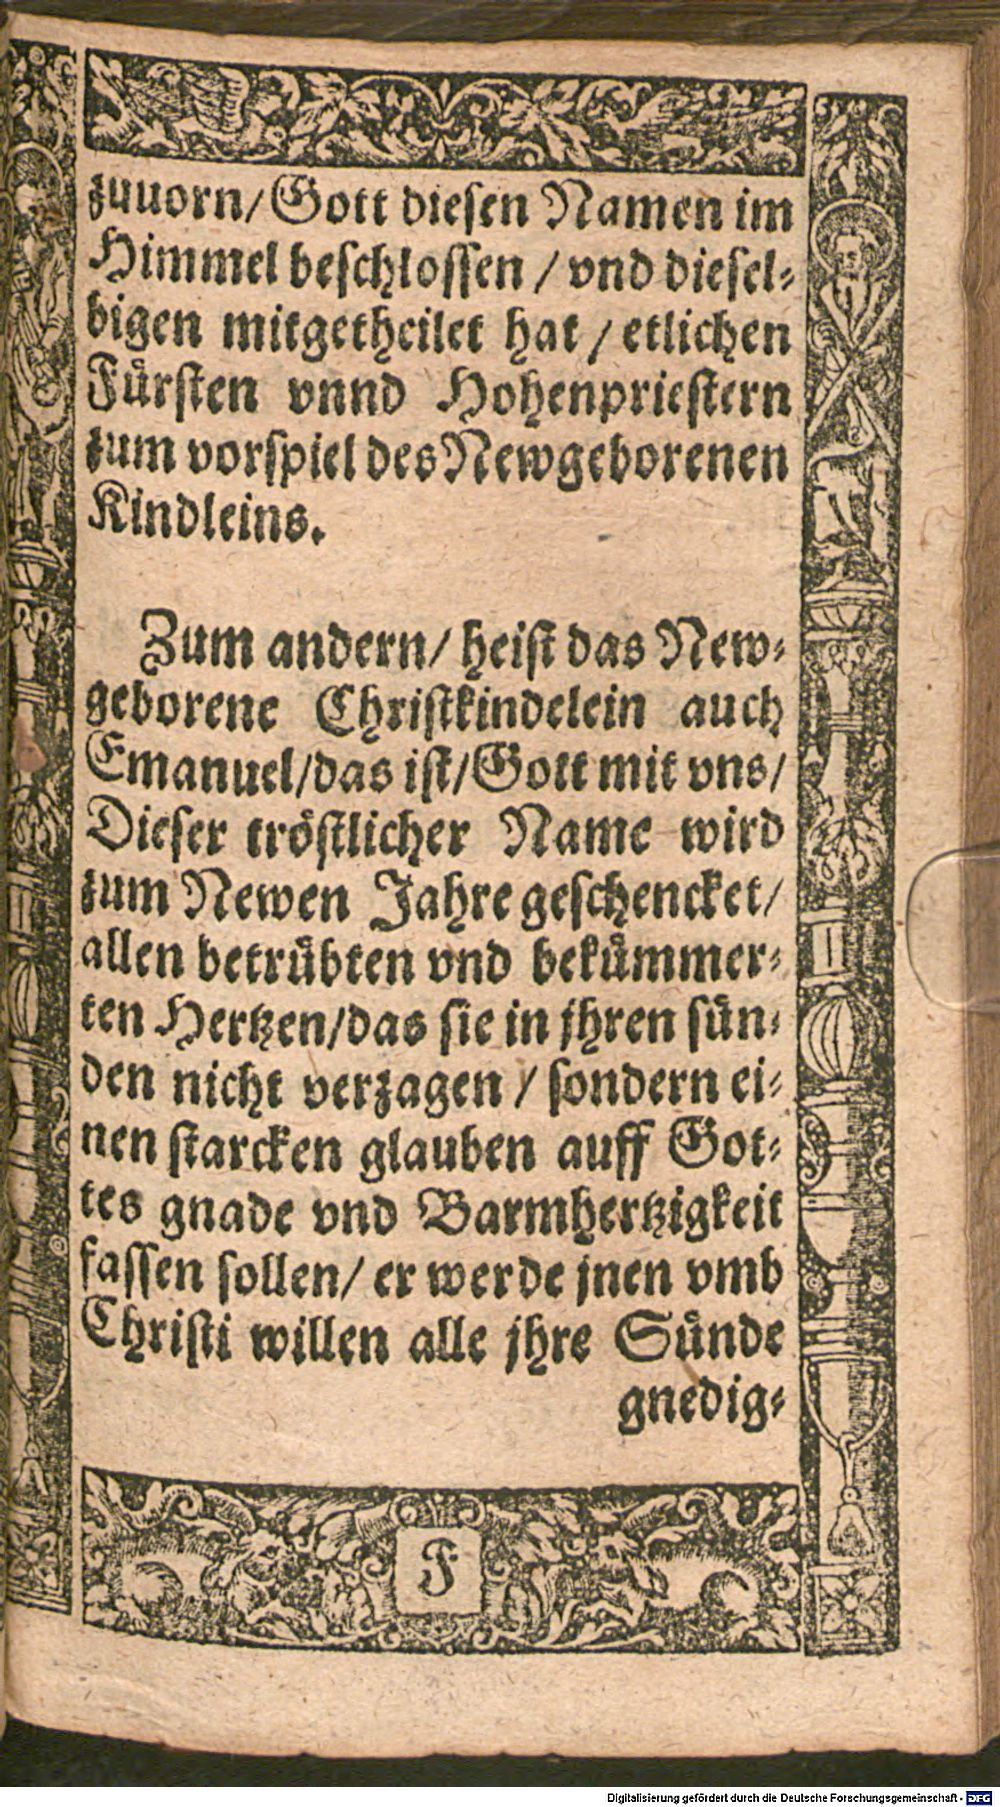 zuuorn/ Gott diesen Namen im
Himmel beschlossen / vnd diesel-
bigen mitgetheilet hat / etlichen
Fürsten vnnd Hohenpriestern
zum vorspiel des Newgeborenen
Kindleins.
Zum andern/ heist das New-
geborene Christkindelein auch
Emanuel/das ist/Gott mit vns/
Dieser tröstlicher Name wird
zum Newen Jahre geschencket/
allen betrübten vnd bekümmer-
ten Hertzen/das sie in jhren sün-
den nicht verzagen / sondern ei-
nen starcken glauben auff Got-
tes gnade vnd Barmhertzigkeit
fassen sollen/ er werde jnen vmb
Christi willen alle jhre Sünde
gnedig-
F
Digitalisierung gefördert durch die Deutsche Forschungsgemeinschaft - DFG